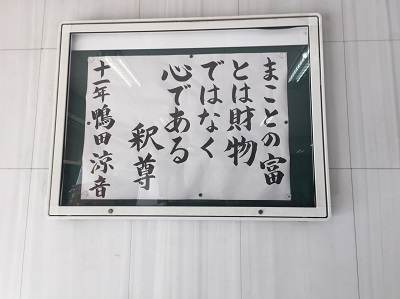 まことの富
とは財物
ではなく
心である
釈尊
十一年 鴨田涼音